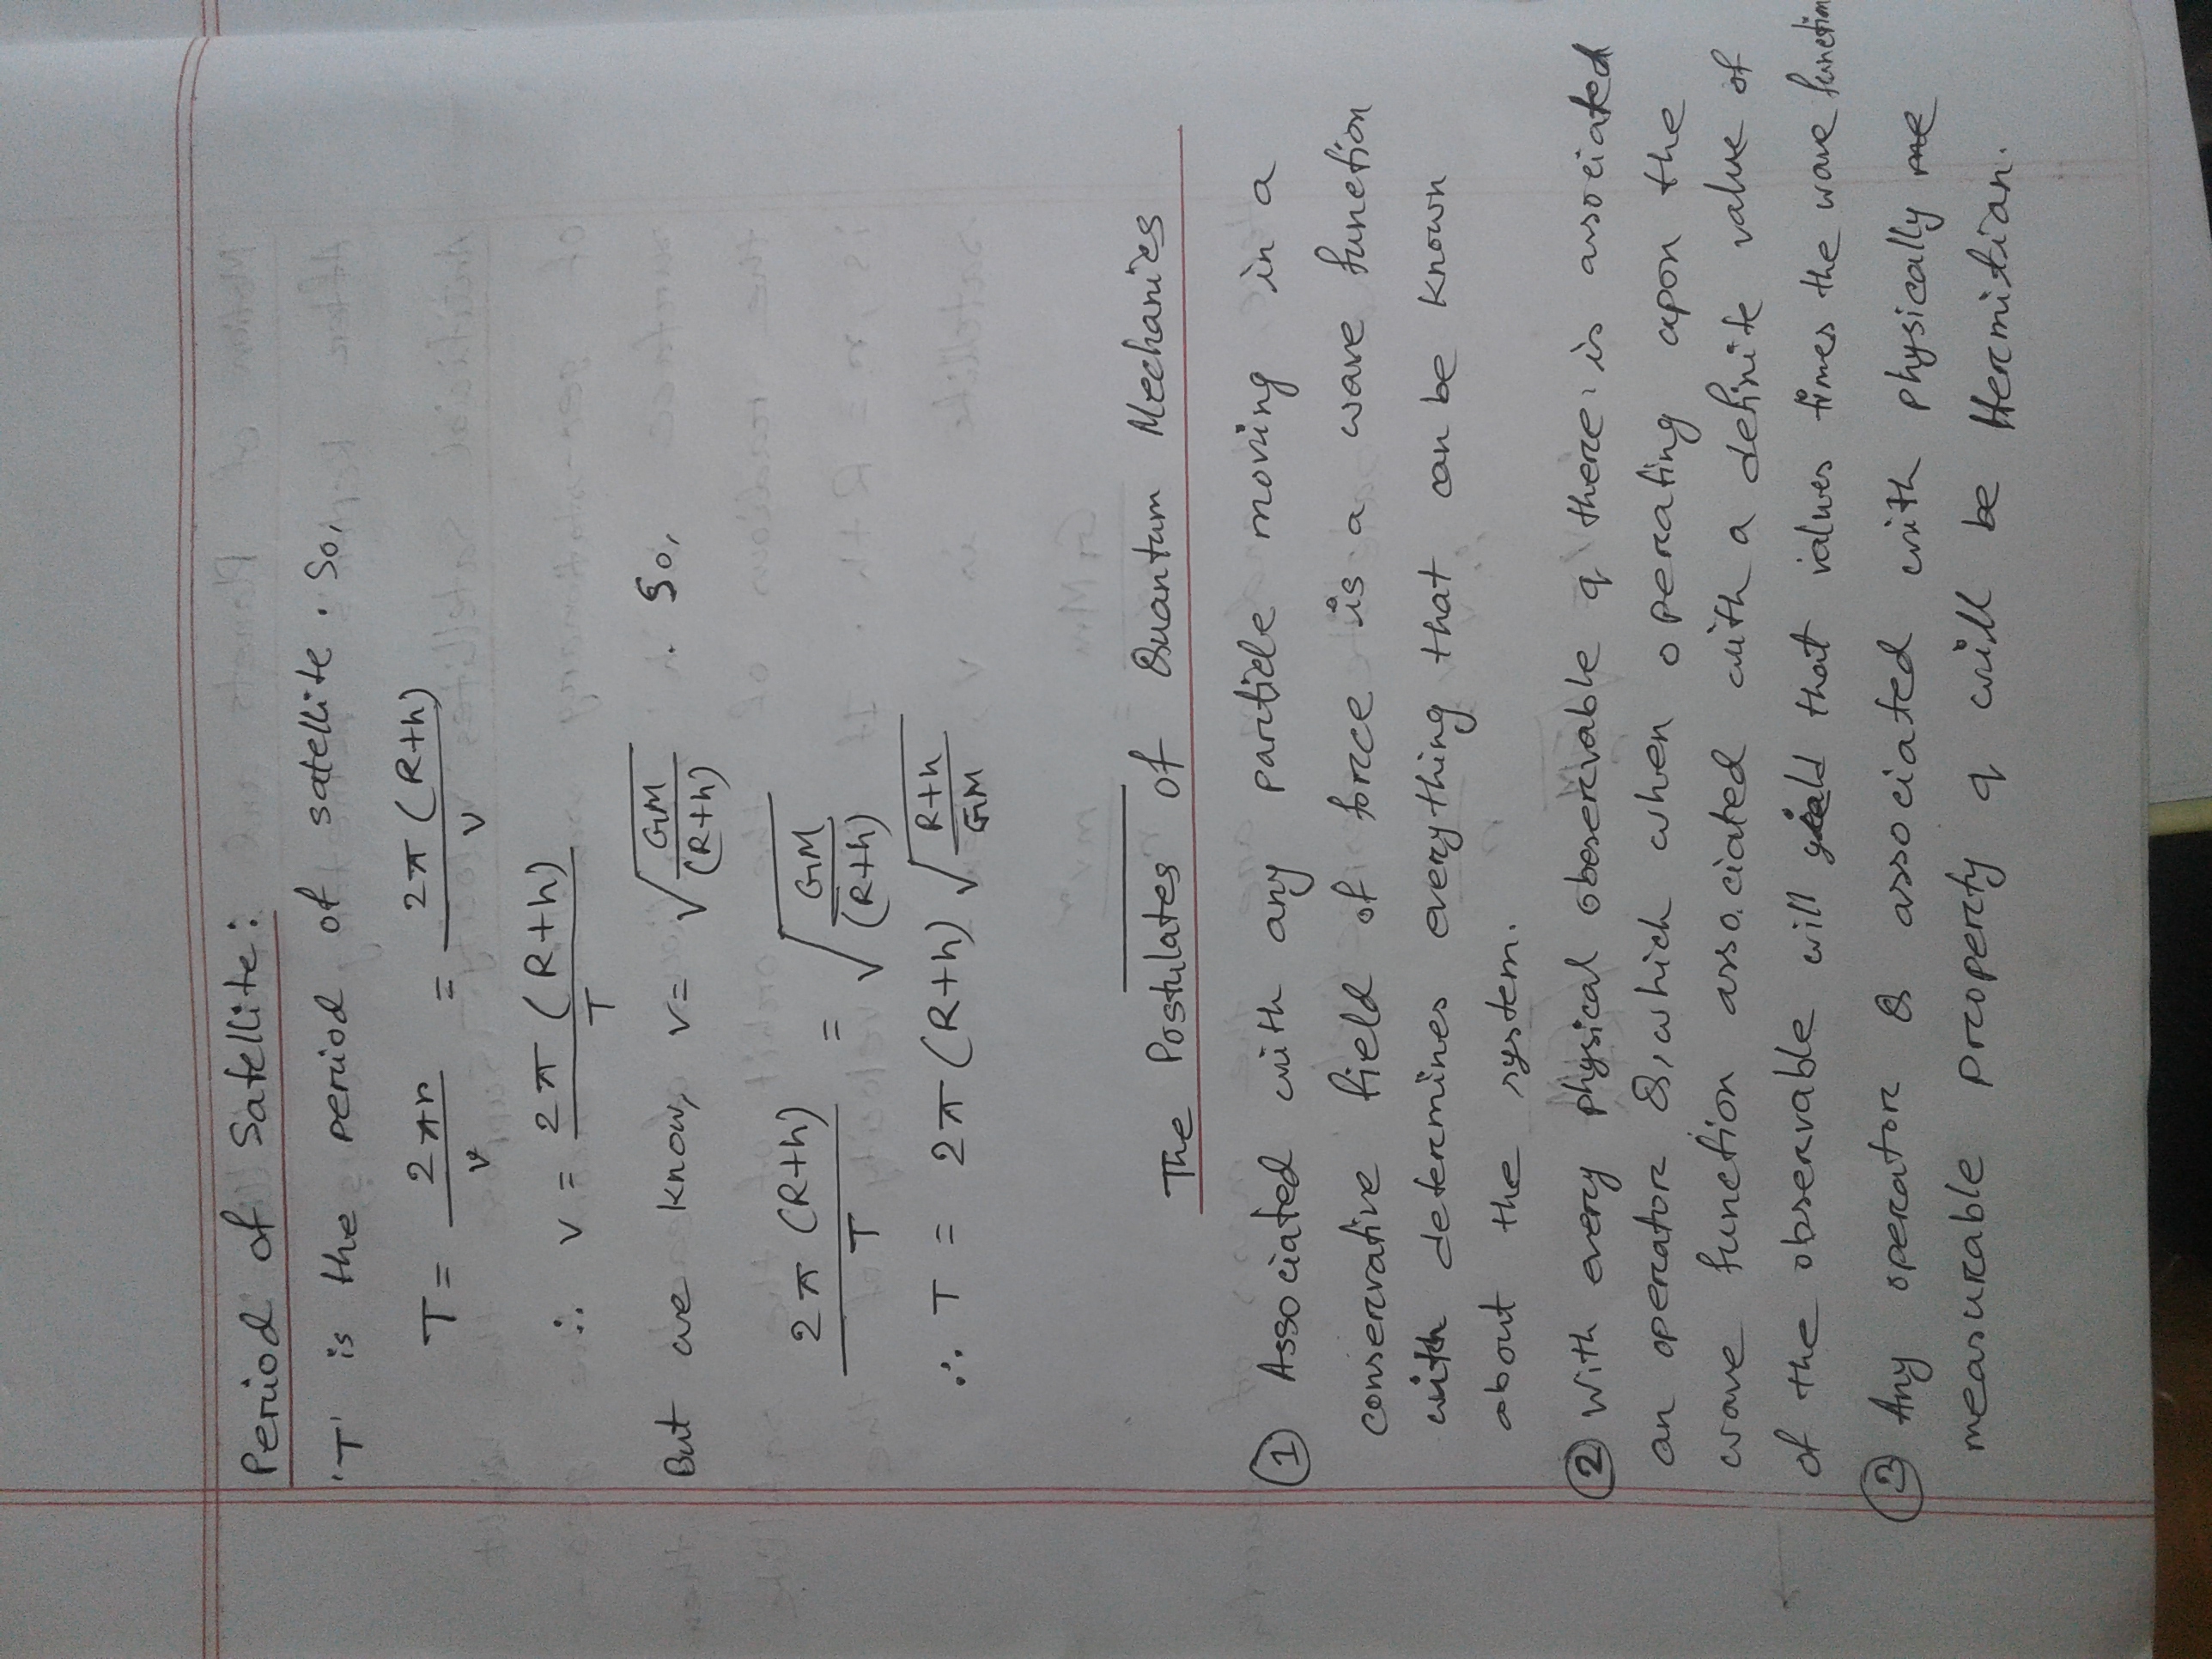 Period of Satellite:
'T' is the period of satellite. So,
T = 2πr/v = 2π(R+h)/v
∴ v = 2π(R+h)/T
But we know, v = √(GM/(R+h)). So,
2π(R+h)/T = √(GM/(R+h))
∴ T = 2π(R+h)√((R+h)/GM)
The Postulates of Quantum Mechanics
① Associated with any particle moving in a
conservative field of force is a wave function
with determines everything that can be known
about the system.
② With every physical obeservable q there is associated
an operator Q, which when operating upon the
wave function associated with a definite value of
of the observable will yield that values times the wave function
③ Any operator Q associated with physically me
measurable property q will be Hermitian.